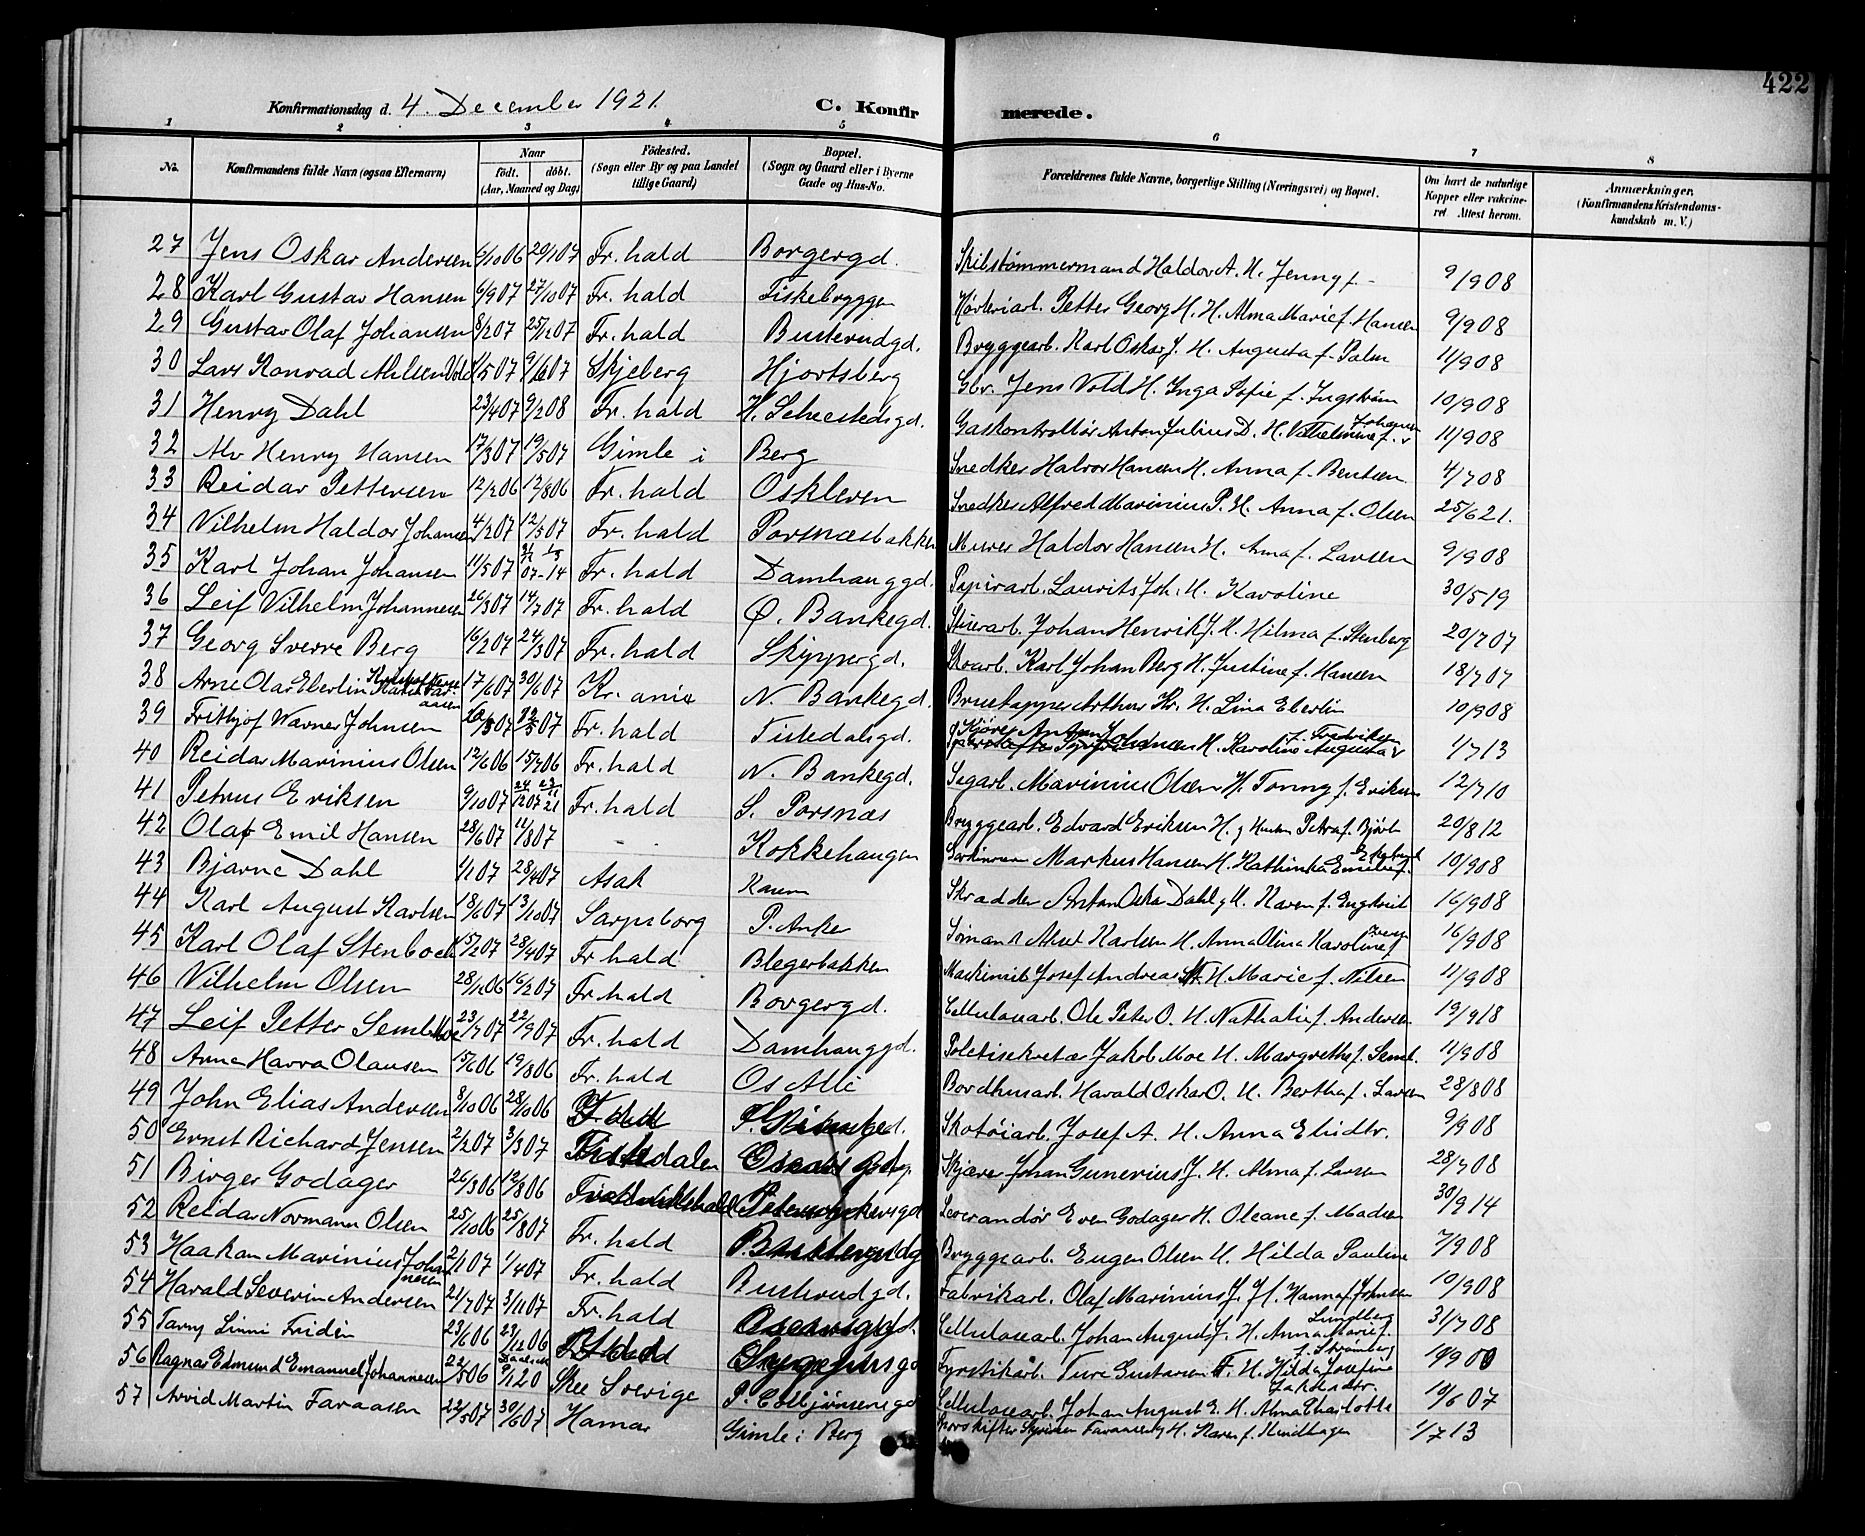 422
Konfirmationsdag d. 4. December 1921.
C. Konfir merede.
1 2 3 4 5 6 7 8
No. Konfirmandens fulde Navn (ogsaa Efternavn) Naar født. døbt. (Aar, Maaned og Dag) Fødested. (Sogn eller By og paa Landet tillige Gaard) Bopæl. (Sogn og Gaard eller i Byerne Gade og Hus-No. Forældrenes fulde Navne, borgerlige Stilling (Næringsvei) og Bopæl. Om havt de naturlige Kopper eller vakcineret Attest herom. Anmærkninger. (Konfirmandens Kristendomskundskab m. V.)
27 Jens Oskar Andersen 6/10 06 20/1 07 Fr. hald Borgergd. Skibstømmermand Haldor A. H. Jenny f. - 9/9 08
28 Karl Gustav Hansen 6/9 07 27/10 07 Fr. hald Fiskebryggen Petter Georg H. H. Alma Marie f. Hansen 9/9 08
29 Gustav Olaf Johansen 8/2 07 25/12 07 Fr. hald Busterudgd. Bryggearb. Karl Oskar J. H. Augusta f. Palm 11/9 08
30 Lars Konrad Ahlsen Vold 1/5 07 9/6 07 Skjeberg Hjortsberg Gbr. Jens Vold H. Inga Sofie f. Ingstrøm 10/9 08
31 Henry Dahl 23/4 07 9/2 08 Fr. hald H. Sehestedsgd. Gaskontrollør Anton Julius D. H. Vilhelmine f. Johansen 11/9 08
32 Alv Henry Hansen 17/3 07 19/5 07 Gimle i Berg Snedker Halvor Hansen H. Anna f. Bentsen 4/7 08
33 Reidar Pettersen 12/2 06 12/8 06 Fr. hald Oskleven Snedker Alfred Marinius P. H. Anna f. Olsen 25/6 21.
34 Vilhelm Haldor Johansen 4/2 07 12/5 07 Fr. hald Porsnæsbakken Murer Haldor Hansen H. Anna f. Larsen 9/9 08
35 Karl Johan Johansen 11/5 07 07-14 Fr. hald Damhauggd. Papirarb. Laurits Joh. H. Karoline 30/5 19
36 Leif Vilhelm Johannesen 26/3 07 14/7 07 Fr. hald Ø. Bankegd. Stuerarb. Johan Henrik J. H. Hilma f. Stenberg 20/7 07
37 Georg Sverre Berg 16/2 07 24/3 07 Fr. hald Skippergd. Skoarb. Karl Johan Berg H. Justine f. Hansen 18/7 07
38 Arne Olav Eberlin 17/6 07 30/6 07 Kr. ania N. Bankegd. Bruetapper Arthur Kr. H. Lina Eberlin 10/9 08
39 Frithjof Warner Johnsen 07 07 Fr. hald Tistedalsgd. Kjører Anton Johnsen H. Karoline Augusta f. Fredriksen 1/7 13
40 Reidar Marinius Olsen 12/6 06 15/7 06 Fr. hald N. Bankegd. Sagarb. Marinius Olsen H. Tonny f. Eriksen 12/7 10
41 Petrus Eriksen 9/10 07 24/12 07 23/11 21 Fr. hald S. Porsnæs Bryggearb. Edvard Eriksen H. Petra f. 20/8 12
42 Olaf Emil Hansen 28/6 07 11/8 07 - Kokkehaugen Markus Hansen H. Kathinka Emilie f. 10/9 08
43 Bjarne Dahl 1/1 07 28/4 07 Asak Skrædder Anton Oskar Dahl H. Karen f. Engkvist 16/9 08
44 Karl August Karlsen 18/6 07 13/10 07 Sarpsborg P. Anker Sømand Aksel Karlsen H. Anna Olina Karoline f. 16/9 08
45 Karl Olaf Stenbock 15/2 07 28/4 07 Fr hald Blegerbakken Maskinist Josef Andreas St. H. Marie f. Nilsen 11/9 08
46 Vilhelm Olsen 06 16/2 07 Fr hald Borgergd. Cellulosearb. Ole Peter O. H. Nathalie f. Andersen 19/9 18
47 Leif Petter Semb Moe 23/7 07 22/9 07 Fr. hald Damhauggd. Politisekretær Jakob Moe H. Margrethe f. Semb. 11/9 08
48 Arne Harra Olausen 15/6 06 19/8 06 Fr. hald Os Allé Bordhusarb. Harald Oskar O. H. Bertha f. Larsen 28/8 08
49 John Elias Andersen 8/10 06 28/10 06 Skotøiarb. Josef A. H. Anna Elidtr. 9/9 08
50 Ernst Richard Jensen 2/2 07 3/3 07 Tistedalen Skjærer Johan Gunerius J. H. Alma f. Larsen 28/7 08
51 Birger Godager 26/3 06 12/8 06 Fredrikshald Leverandør Even Godager H. Oleane f. Madsen 30/9 14
52 Reidar Normann Olsen 25/10 06 25/8 07 Fr. hald Bryggearb. Eugen Olsen H. Hilda Pauline 7/9 08
53 Haakan Marinius Johannesen 2/1 07 1/4 07 Fr. hald Busterudgd. Fabrikarb. Olaf Marinius J. H. Hanna f. Johnsen 10/9 08
54 Harald Severin Andersen 21/7 07 3/11 07 Fr. hald Oscarsgd. Cellulosearb. Johan August J. H. Anna Marie f. Lundberg 31/7 08
55 Linni Fridin 23/6 06 23/12 06 Fyrstikarb. Ture Gustavsen F. H. Hilda Josefine f. Strømberg
56 Ragnar Edmund Emanuel Johannesen 22/5 06 9/1 20 Skee Sverige P. Colbjørnsensgd Cellulosearb. Johan August E. H. Alma Charlotte 10/6 07
57 Arvid Martin Faraasen 22/5 07 30/6 07 Hamar Gimle i Berg H. Karen f. 1/7 13